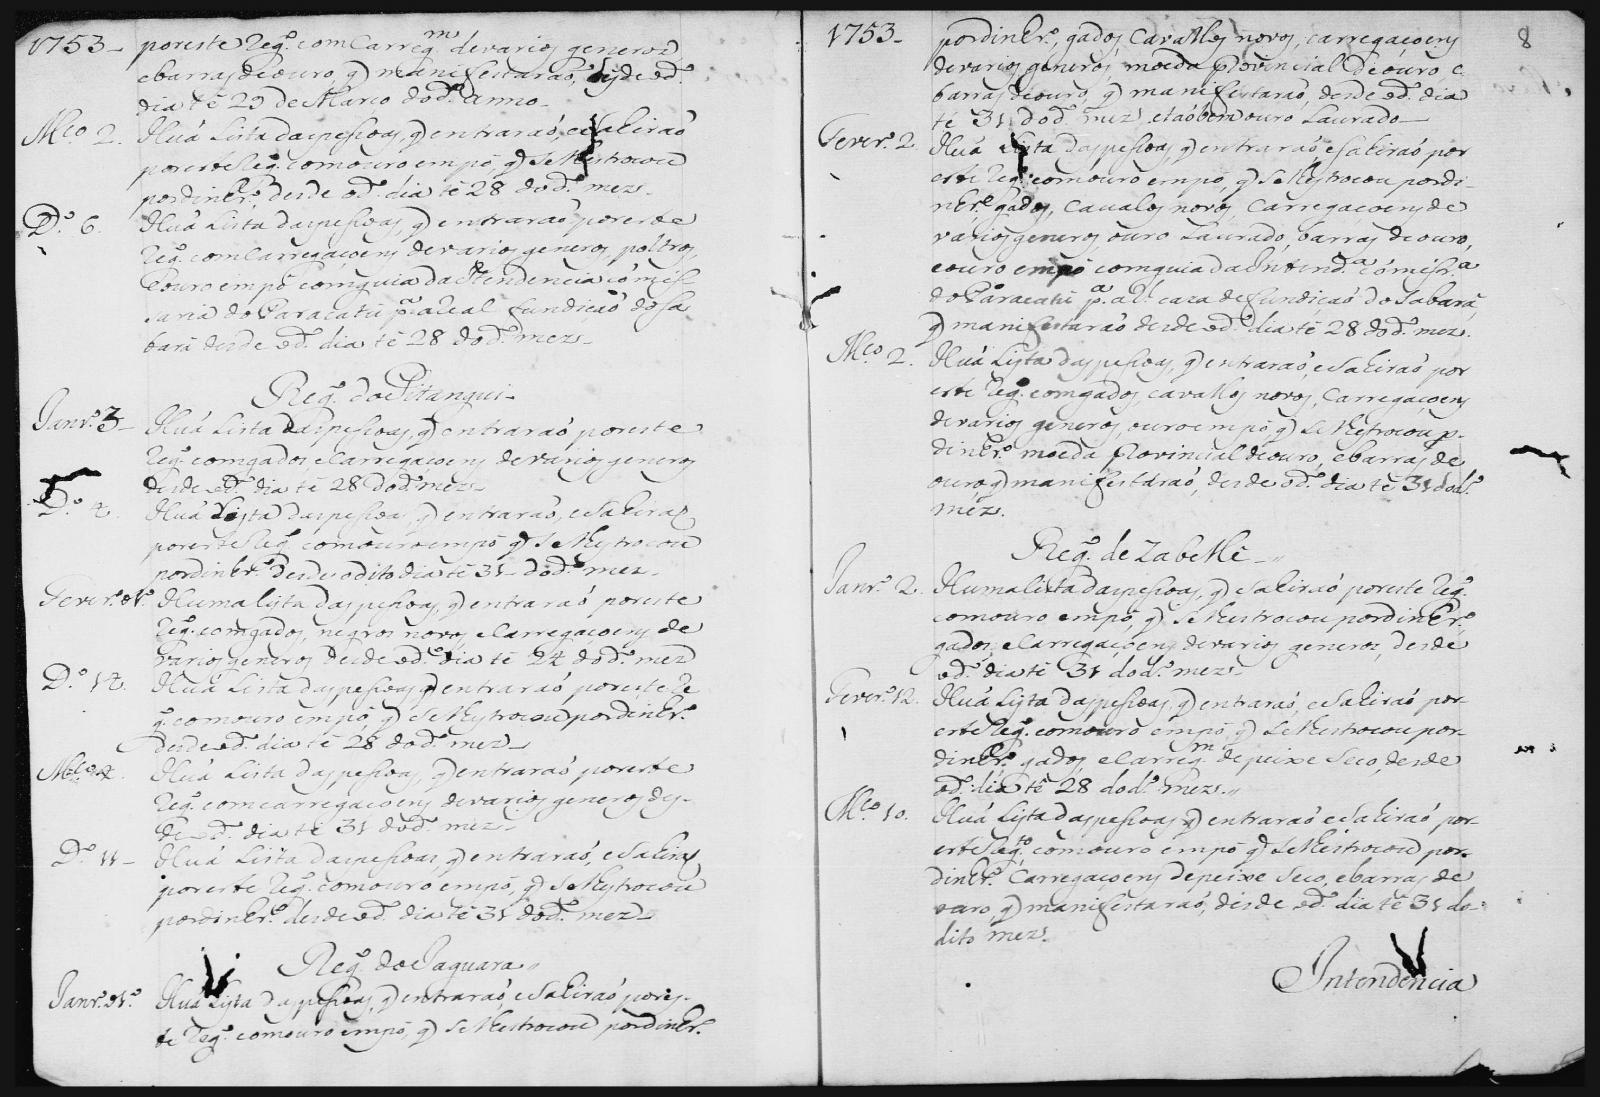 1753_ poreste Reg.º com Carreg.m de varios generos
e barras de ouro, q̃ manifestaraó, desde od.º
dia té 29 de Marco dod.º anno_
M.co 2. Huá Lista das pesoas, q̃ entraraó, e Sahiraó
por este Reg.º com ouro em pó, q̃ Se lhes trocou
por dinhr.º, desde od.º dia té 28 dod.º mez_
D.º 6. Huá Lista das pesoas, q̃ entraraó por este
Reg.º com Carregaçoens de varios generos, poltros,
e ouro em pó com guia da Intendencia comis-
saria do Paracatú p.ª a Real fundição do Sa
bará desde od.º dia té 28 dod.º mez_
Reg.º do Pitangui_
Janr.º 3_ Huá Lista das pesoas, q̃ entraraó por este
Reg.º com gados e Carregaçoens de varios generos
desde od.º dia té 28 dod.º mez_
D.º 4. Huá Lista das pesoas, q̃ entraraó, e Sahiraó
por este Reg.º com ouro em pó q̃ Se lhes trocou
por dinhr.º desde o dito dia té 31_ dod.º mez_
Fever.º 1.º Huma lista das pesoas, q̃ entraraó por este
Reg.º com gados, negros novos, e Carregaçoens de
varios generos desde od.º dia té 24 dod.º mez
D.º 14. Huá Lista das pesoas q̃ entraraó por este Re
g.º com ouro em pó, q̃ Se lhes trocou por dinhr.º
desde od.º dia té 28 dod.º mez_
M.co 4. Huá Lista das pesoas, q̃ entraraó por este
Reg.º com carregaçoens de varios generos des-
de od.º dia té 31 dod.º mez_
D.º 11_ Huá Lista das pesoas, q̃ entraraó, e Sahiraó
por este Reg.º com ouro em pó, q̃ Se lhes trocou
por dinhr.º desde od.º dia té 31 dod.º mez_
Reg.º do Jaguara_
Janr.º 1.º Huá Lista das pesoas, q̃ entraraó, e Sahiraó por es-
te Reg.º com ouro em pó, q̃ Se lhes trocou por dinhr.º
8
1753_ por dinhr.º, gados, Cavallos novos, carregaçoens
de varios generos, moeda Provincial de ouro e
barras de ouro, q̃ manifestaraó, desde od.º dia
té 31 dod.º mez, e taóbem ouro Laurado_
Fever.º 2. Huá Lista das pesoas, q̃ entraraó e Sahiraó por
este Reg.º com ouro em pó, q̃ Se lhes trocou por di-
nhr.º gados, Cavalos novos, Carregaçoens de
varios generos, ouro Laurado, barras de ouro,
e ouro em pó com guia da Intend.ª comisr.ª
do Paracatú p.ª a R.l caza de fundiçaó do Sabará,
q̃ manifestaraó desde od.º dia té 28 dod.º mez.
M.co 2. Huá Lista das pesoas, q̃ entraraó, e Sahiraó por
este Reg.º com gados, cavallos novos, Carregaçoens
de varios generos, ouro em pó q̃ Se lhes trocou p.
dinhr.º moeda Provincial de ouro, e barras de
ouro, q̃ manifestaraó, desde od.º dia té 31 dod.º
mez.
Reg.º de Zabelle_
Janr.º 2. Huma lista das pesoas, q̃ e Sahiraó por este Reg.º
com ouro em pó, q̃ Se lhes trocou por dinhr.º
gados, e Carregaçoens de varios generos, desde
od.º dia té 31 dod.º mez_
Fever.º 12. Huá Lista das pesoas, q̃ entraraó, e Sahiraó por-
este Reg.º com ouro em pó, q̃ Se lhes trocou por-
dinhr.º gados, e Carreg.m de peixe Seco, desde
od.º dia té 28 dod.º mez_
M.co 10. Huá Lista das pesoas q̃ entraraó e Sahiraó por-
este Reg.º com ouro em pó q̃ Se lhes trocou por-
dinhr.º Carregaçoens de peixe Seco, e barras de
ouro, q̃ manifestaraó, desde od.º dia té 31 do
dito mez.
Intendencia